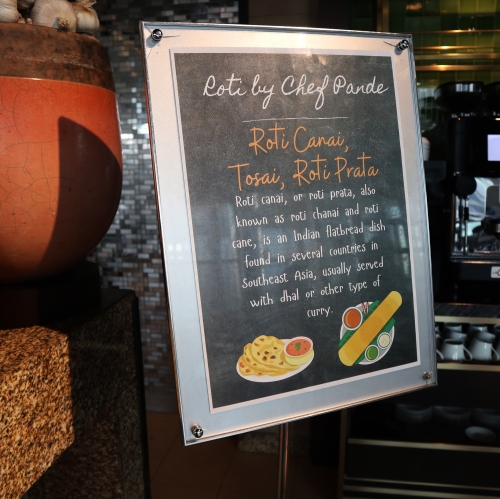 Roti by Chef Pande
Roti Canai,
Tosai, Roti Prata
Roti canai, or roti prata, also
known as roti chanai and roti
cane, is an Indian flatbread dish
found in several countries in
Southeast Asia, usually served
with dhal or other type of
curry.